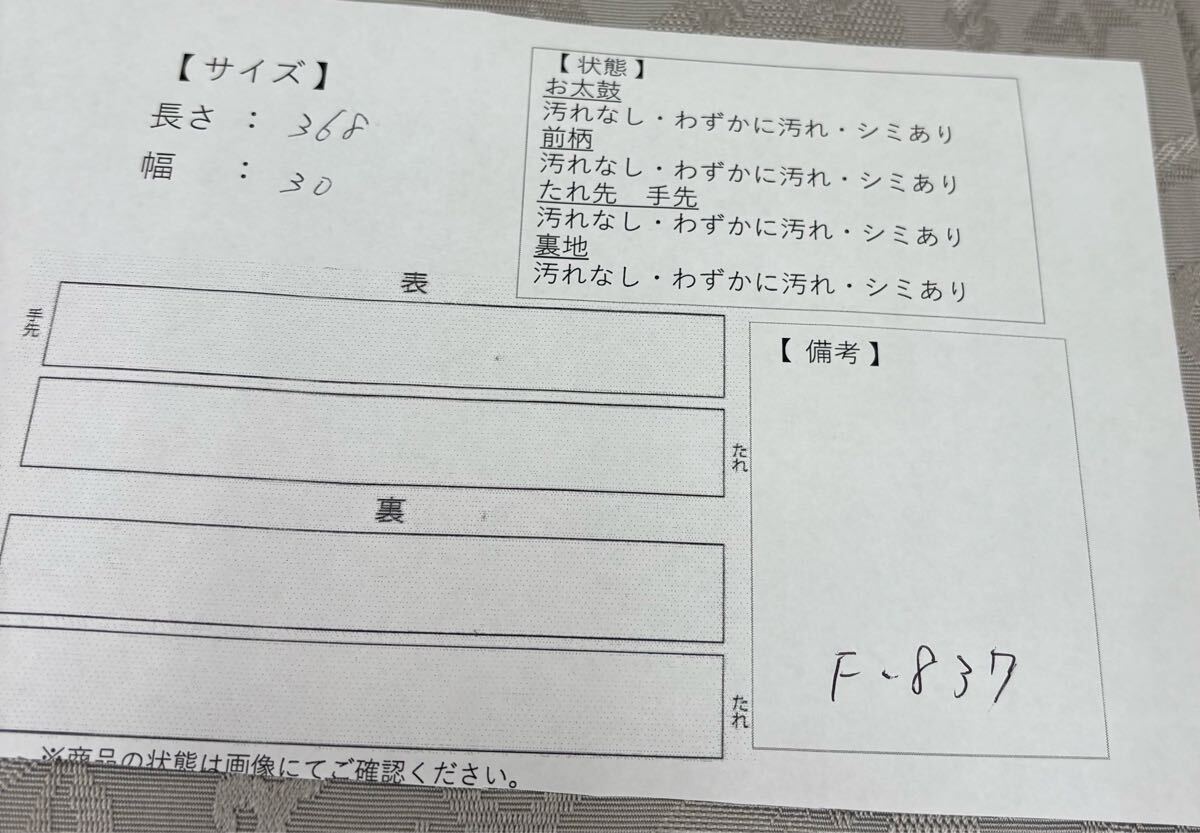 【 サイズ 】
長さ ： 368
幅 ： 30
【 状態 】
お太鼓
汚れなし・わずかに汚れ・シミあり
前柄
汚れなし・わずかに汚れ・シミあり
たれ先　手先
汚れなし・わずかに汚れ・シミあり
裏地
汚れなし・わずかに汚れ・シミあり
表
手先
たれ
裏
たれ
【 備考 】
F-837
※商品の状態は画像にてご確認ください。